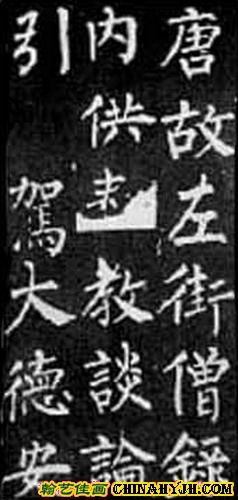 唐故左街僧錄
內供教談論
引駕大德安
翰艺佳画 CHINAHYJH.COM